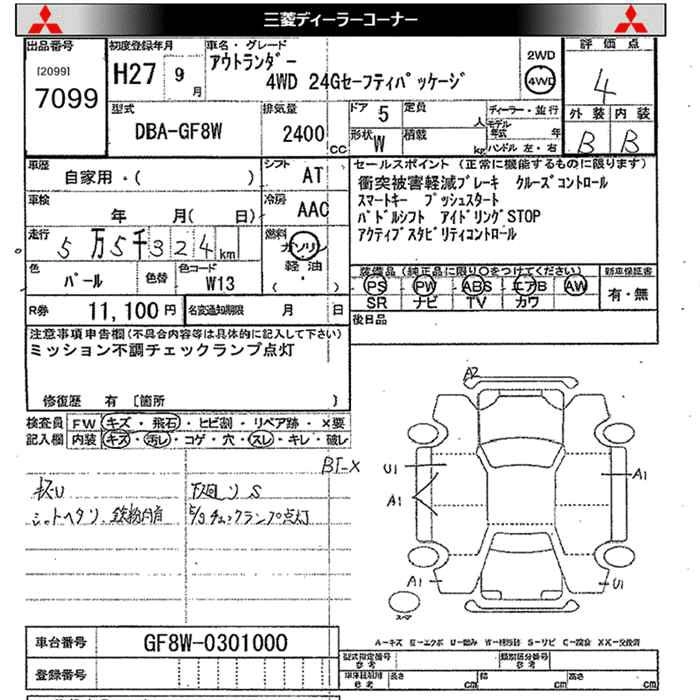 三菱ディーラーコーナー
出品番号 初度登録年月 車名・グレード 評価点
[2099] 7099 H27 9月 アウトランダー 2WD
4WD 24Gセーフティパッケージ 4WD 4
型式 排気量 ドア 5 定員 人 ディーラー・並行 外装 内装
DBA-GF8W 2400cc 形状 W 積載 kg モデル年式 年 B B
ハンドル 左・右
車歴 シフト セールスポイント(正常に機能するものに限ります)
自家用・( ) AT 衝突被害軽減ブレーキ クルーズコントロール
車検 冷房 スマートキー プッシュスタート
年 月( 日) AAC パドルシフト アイドリングSTOP
走行 5万5千324km 燃料 ガソリン アクティブスタビリティコントロール
軽油・( )
色 パール 色替 色コード W13 装備品(純正品に限り○をつけてください) 新車保証書
PS PW ABS エアB AW 有・無
SR ナビ TV カワ
R券 11,100円 名変通知期限 月 日 後日品
注意事項申告欄(不具合内容等は具体的に記入して下さい)
ミッション不調チェックランプ点灯
修復歴 有 [箇所 ]
検査員 FW キズ・飛石・ヒビ割・リペア跡・×要
記入欄 内装 キズ・汚レ・コゲ・穴・スレ・キレ・破レ
A2
U1
A1
A1
A1
U1
スペア
下廻リS
シートヘタリ
チェックランプ点灯
A-キズ E-エクボ U-凹み W-補修跡 S-サビ C-腐食 XX-交換済
車台番号 GF8W-0301000
登録番号
型式指定番号 参考 類別区分番号 参考
車体諸元 参考 長さ cm 幅 cm 高さ cm